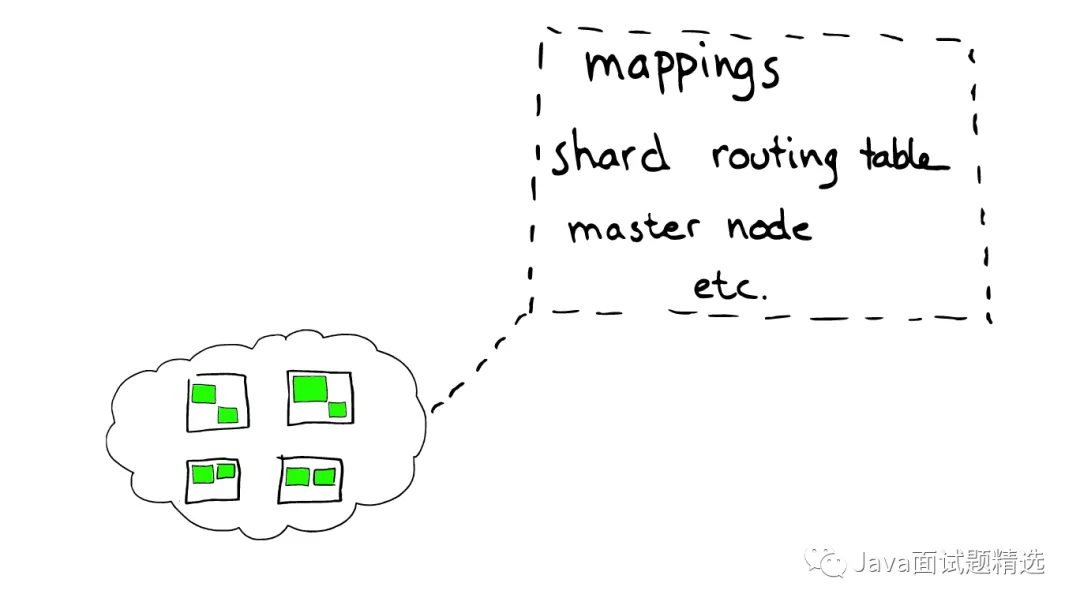 mappings
shard routing table
master node
etc.
Java面试题精选